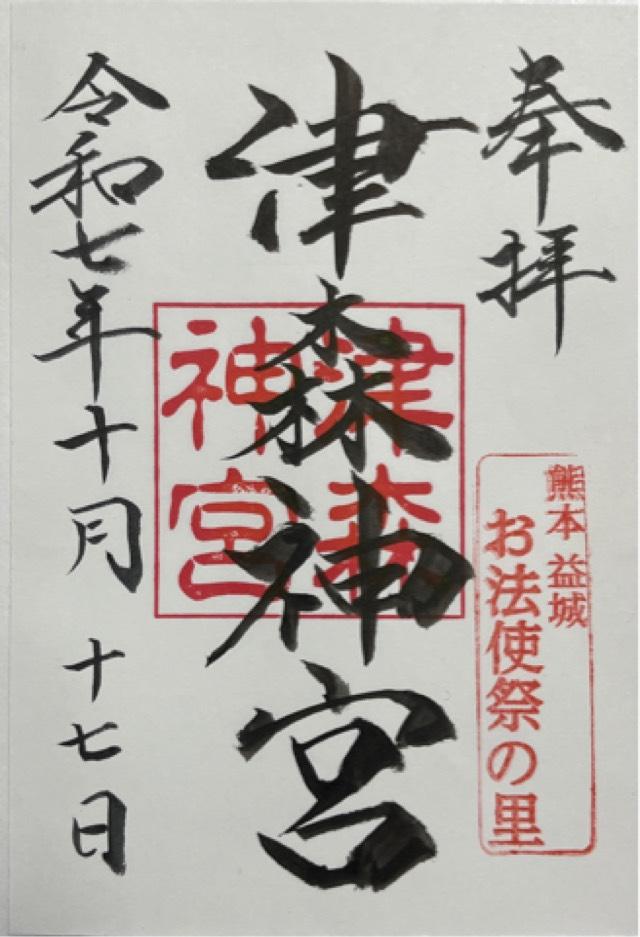 奉拝
熊本 益城
お法使祭の里
津森神宮
津森
神宮
令和七年十月十七日